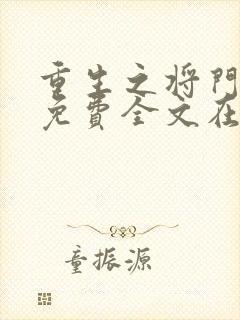 重生之将門
免費全文在
童振源